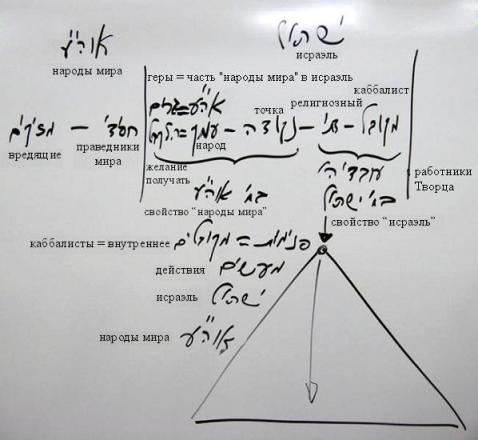 אוה"ע ישראל
народы мира израэль
геры = часть "народы мира" в израэль
каббалист
אוה"ע=גרים точка религиозный
מזיקים – חסידי – עמך – נקודה – דתי – מקובל
вредящие праведники мира народ
желание получать
בח' אוה"ע עובדי ה' работники Творца
свойство "народы мира" בח' ישראל
свойство "израэль"
каббалисты = внутреннее פנימיות = מקובלים
действия מעשים
израэль ישראל
народы мира אוה"ע